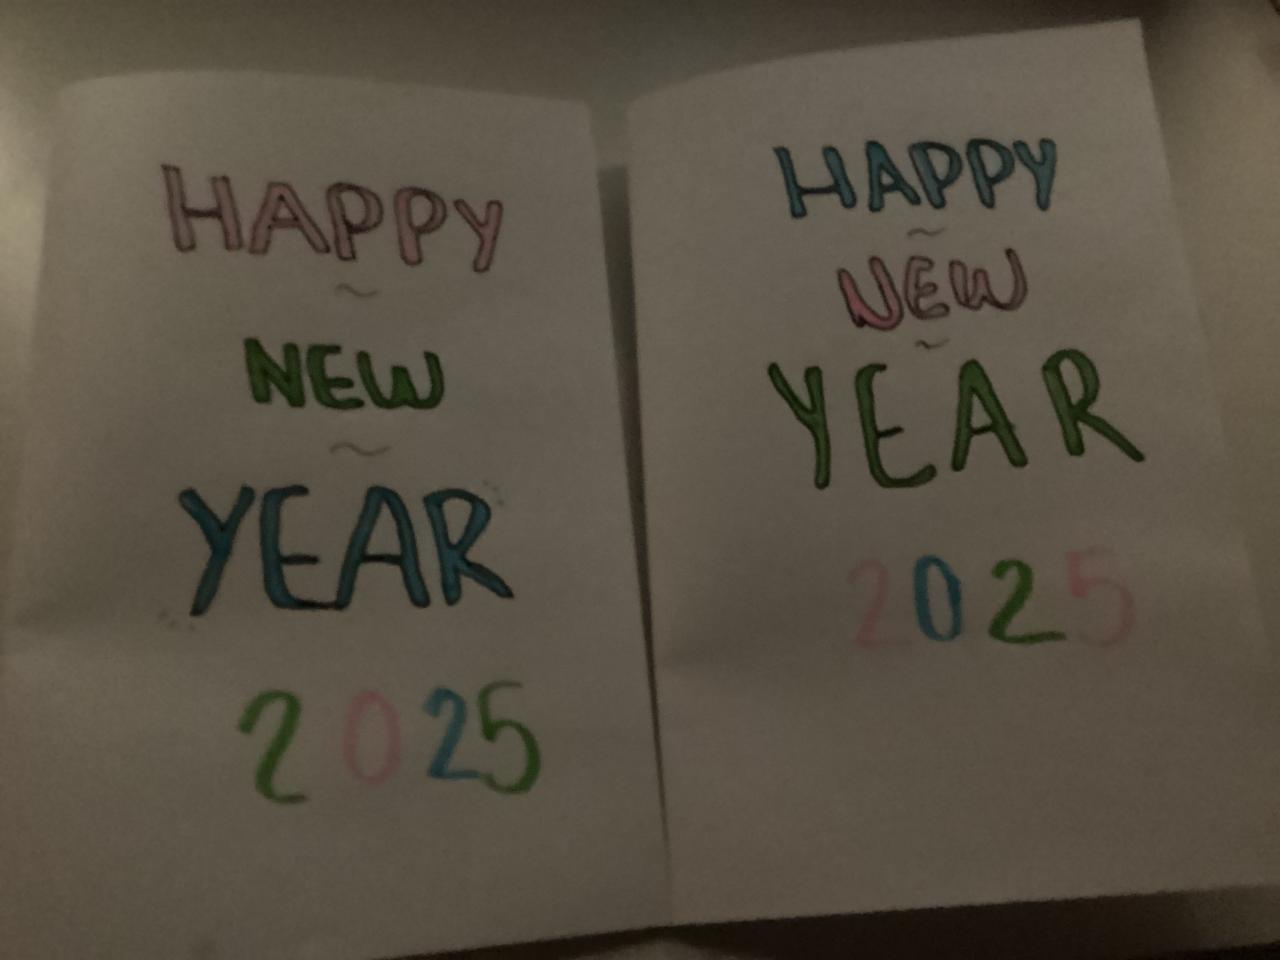 HAPPY
~
NEW
~
YEAR
2025
HAPPY
~
NEW
~
YEAR
2025